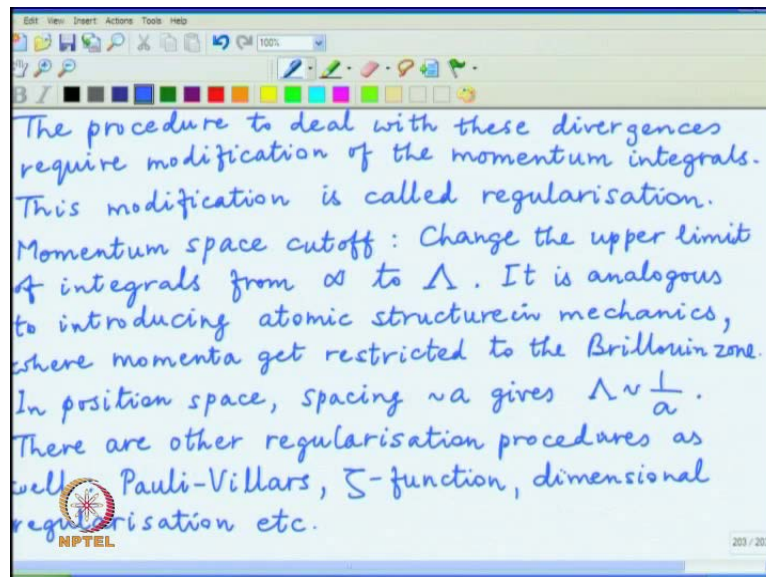 Edit View Insert Actions Tools Help
100%
B I
The procedure to deal with these divergences
require modification of the momentum integrals.
This modification is called regularisation.
Momentum space cutoff : Change the upper limit
of integrals from ∞ to Λ. It is analogous
to introducing atomic structure in mechanics,
where momenta get restricted to the Brillouin zone.
In position space, spacing ~a gives Λ ~ 1/a.
There are other regularisation procedures as
well Pauli-Villars, ζ-function, dimensional
regularisation etc.
NPTEL
203 / 20